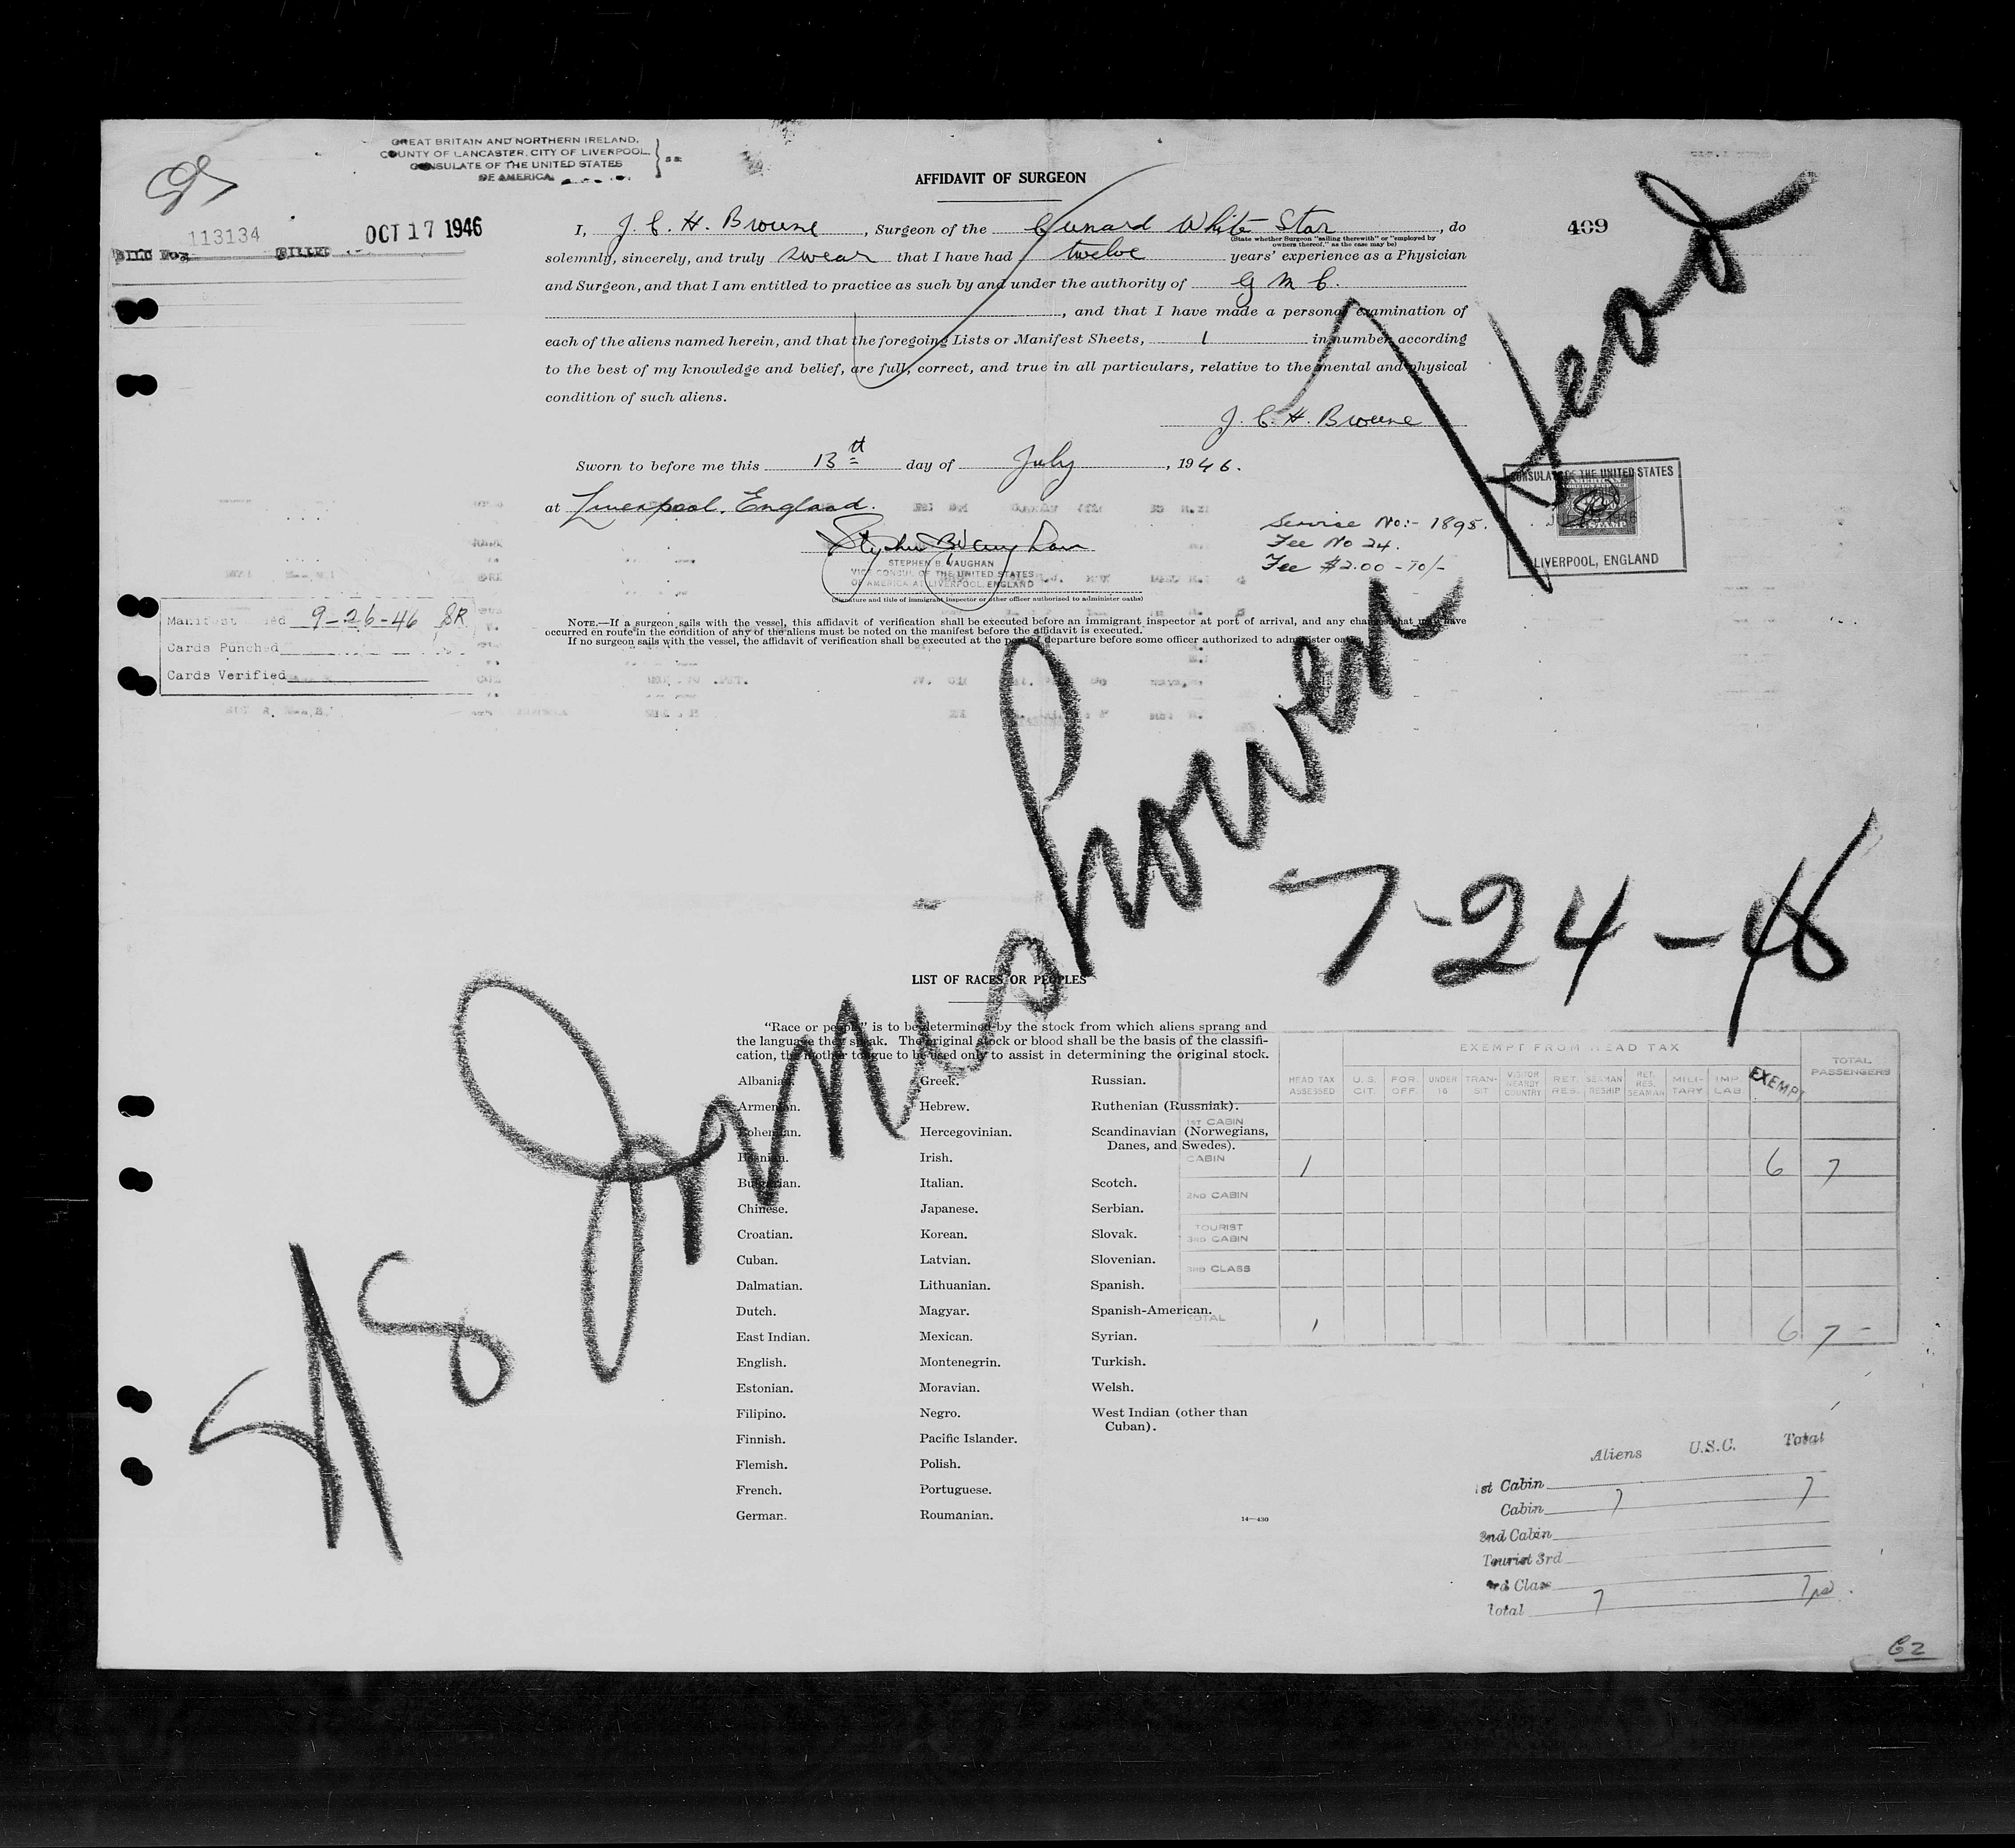 GREAT BRITAIN AND NORTHERN IRELAND,
COUNTY OF LANCASTER, CITY OF LIVERPOOL,
CONSULATE OF THE UNITED STATES
OF AMERICA
SS
BILL No. 113134 BILLED OCT 17 1946
409
AFFIDAVIT OF SURGEON
I, J. C. H. Browne, Surgeon of the Cunard White Star, do
(State whether Surgeon "sailing therewith" or "employed by
owners thereof," as the case may be)
solemnly, sincerely, and truly swear that I have had twelve years' experience as a Physician
and Surgeon, and that I am entitled to practice as such by and under the authority of G M C.
, and that I have made a personal examination of
each of the aliens named herein, and that the foregoing Lists or Manifest Sheets, 1 in number, according
to the best of my knowledge and belief, are full, correct, and true in all particulars, relative to the mental and physical
condition of such aliens.
J. C. H. Browne
Sworn to before me this 13th day of July, 1946.
at Liverpool, England.
Stephen B. Vaughan
STEPHEN B. VAUGHAN
VICE CONSUL OF THE UNITED STATES
OF AMERICA AT LIVERPOOL, ENGLAND
(Signature and title of immigrant inspector or other officer authorized to administer oaths)
Service No:- 1895.
Fee No 24.
Fee $2.00 - 10/-
CONSULATE OF THE UNITED STATES
AMERICAN
FOREIGN SERVICE
STAMP
LIVERPOOL, ENGLAND
NOTE.—If a surgeon sails with the vessel, this affidavit of verification shall be executed before an immigrant inspector at port of arrival, and any changes that may have
occurred en route in the condition of any of the aliens must be noted on the manifest before the affidavit is executed.
If no surgeon sails with the vessel, the affidavit of verification shall be executed at the port of departure before some officer authorized to administer oaths.
Manifest 9-26-46 SR
Cards Punched
Cards Verified
Head
7-24-46
LIST OF RACES OR PEOPLES
"Race or people" is to be determined by the stock from which aliens sprang and
the language they speak. The original stock or blood shall be the basis of the classifi-
cation, the mother tongue to be used only to assist in determining the original stock.
Albanian.
Armenian.
Bohemian.
Bosnian.
Bulgarian.
Chinese.
Croatian.
Cuban.
Dalmatian.
Dutch.
East Indian.
English.
Estonian.
Filipino.
Finnish.
Flemish.
French.
German.
Greek.
Hebrew.
Hercegovinian.
Irish.
Italian.
Japanese.
Korean.
Latvian.
Lithuanian.
Magyar.
Mexican.
Montenegrin.
Moravian.
Negro.
Pacific Islander.
Polish.
Portuguese.
Roumanian.
Russian.
Ruthenian (Russniak).
Scandinavian (Norwegians,
Danes, and Swedes).
Scotch.
Serbian.
Slovak.
Slovenian.
Spanish.
Spanish-American.
Syrian.
Turkish.
Welsh.
West Indian (other than
Cuban).
14—430
EXEMPT FROM HEAD TAX
HEAD TAX ASSESSED U.S. CIT. FOR. OFF. UNDER 16 TRAN-SIT VISITOR NEARBY COUNTRY RET. RES. SEAMAN RESHIP RET. RES. SEAMAN MILI-TARY IMP. LAB. EXEMPT TOTAL PASSENGERS
1ST CABIN
CABIN 1 6 7
2ND CABIN
TOURIST
3RD CABIN
3RD CLASS
TOTAL 1 6 7 -
Aliens U.S.C. Total
1st Cabin
Cabin 7 7
2nd Cabin
Tourist 3rd
3rd Class
Total 7 7